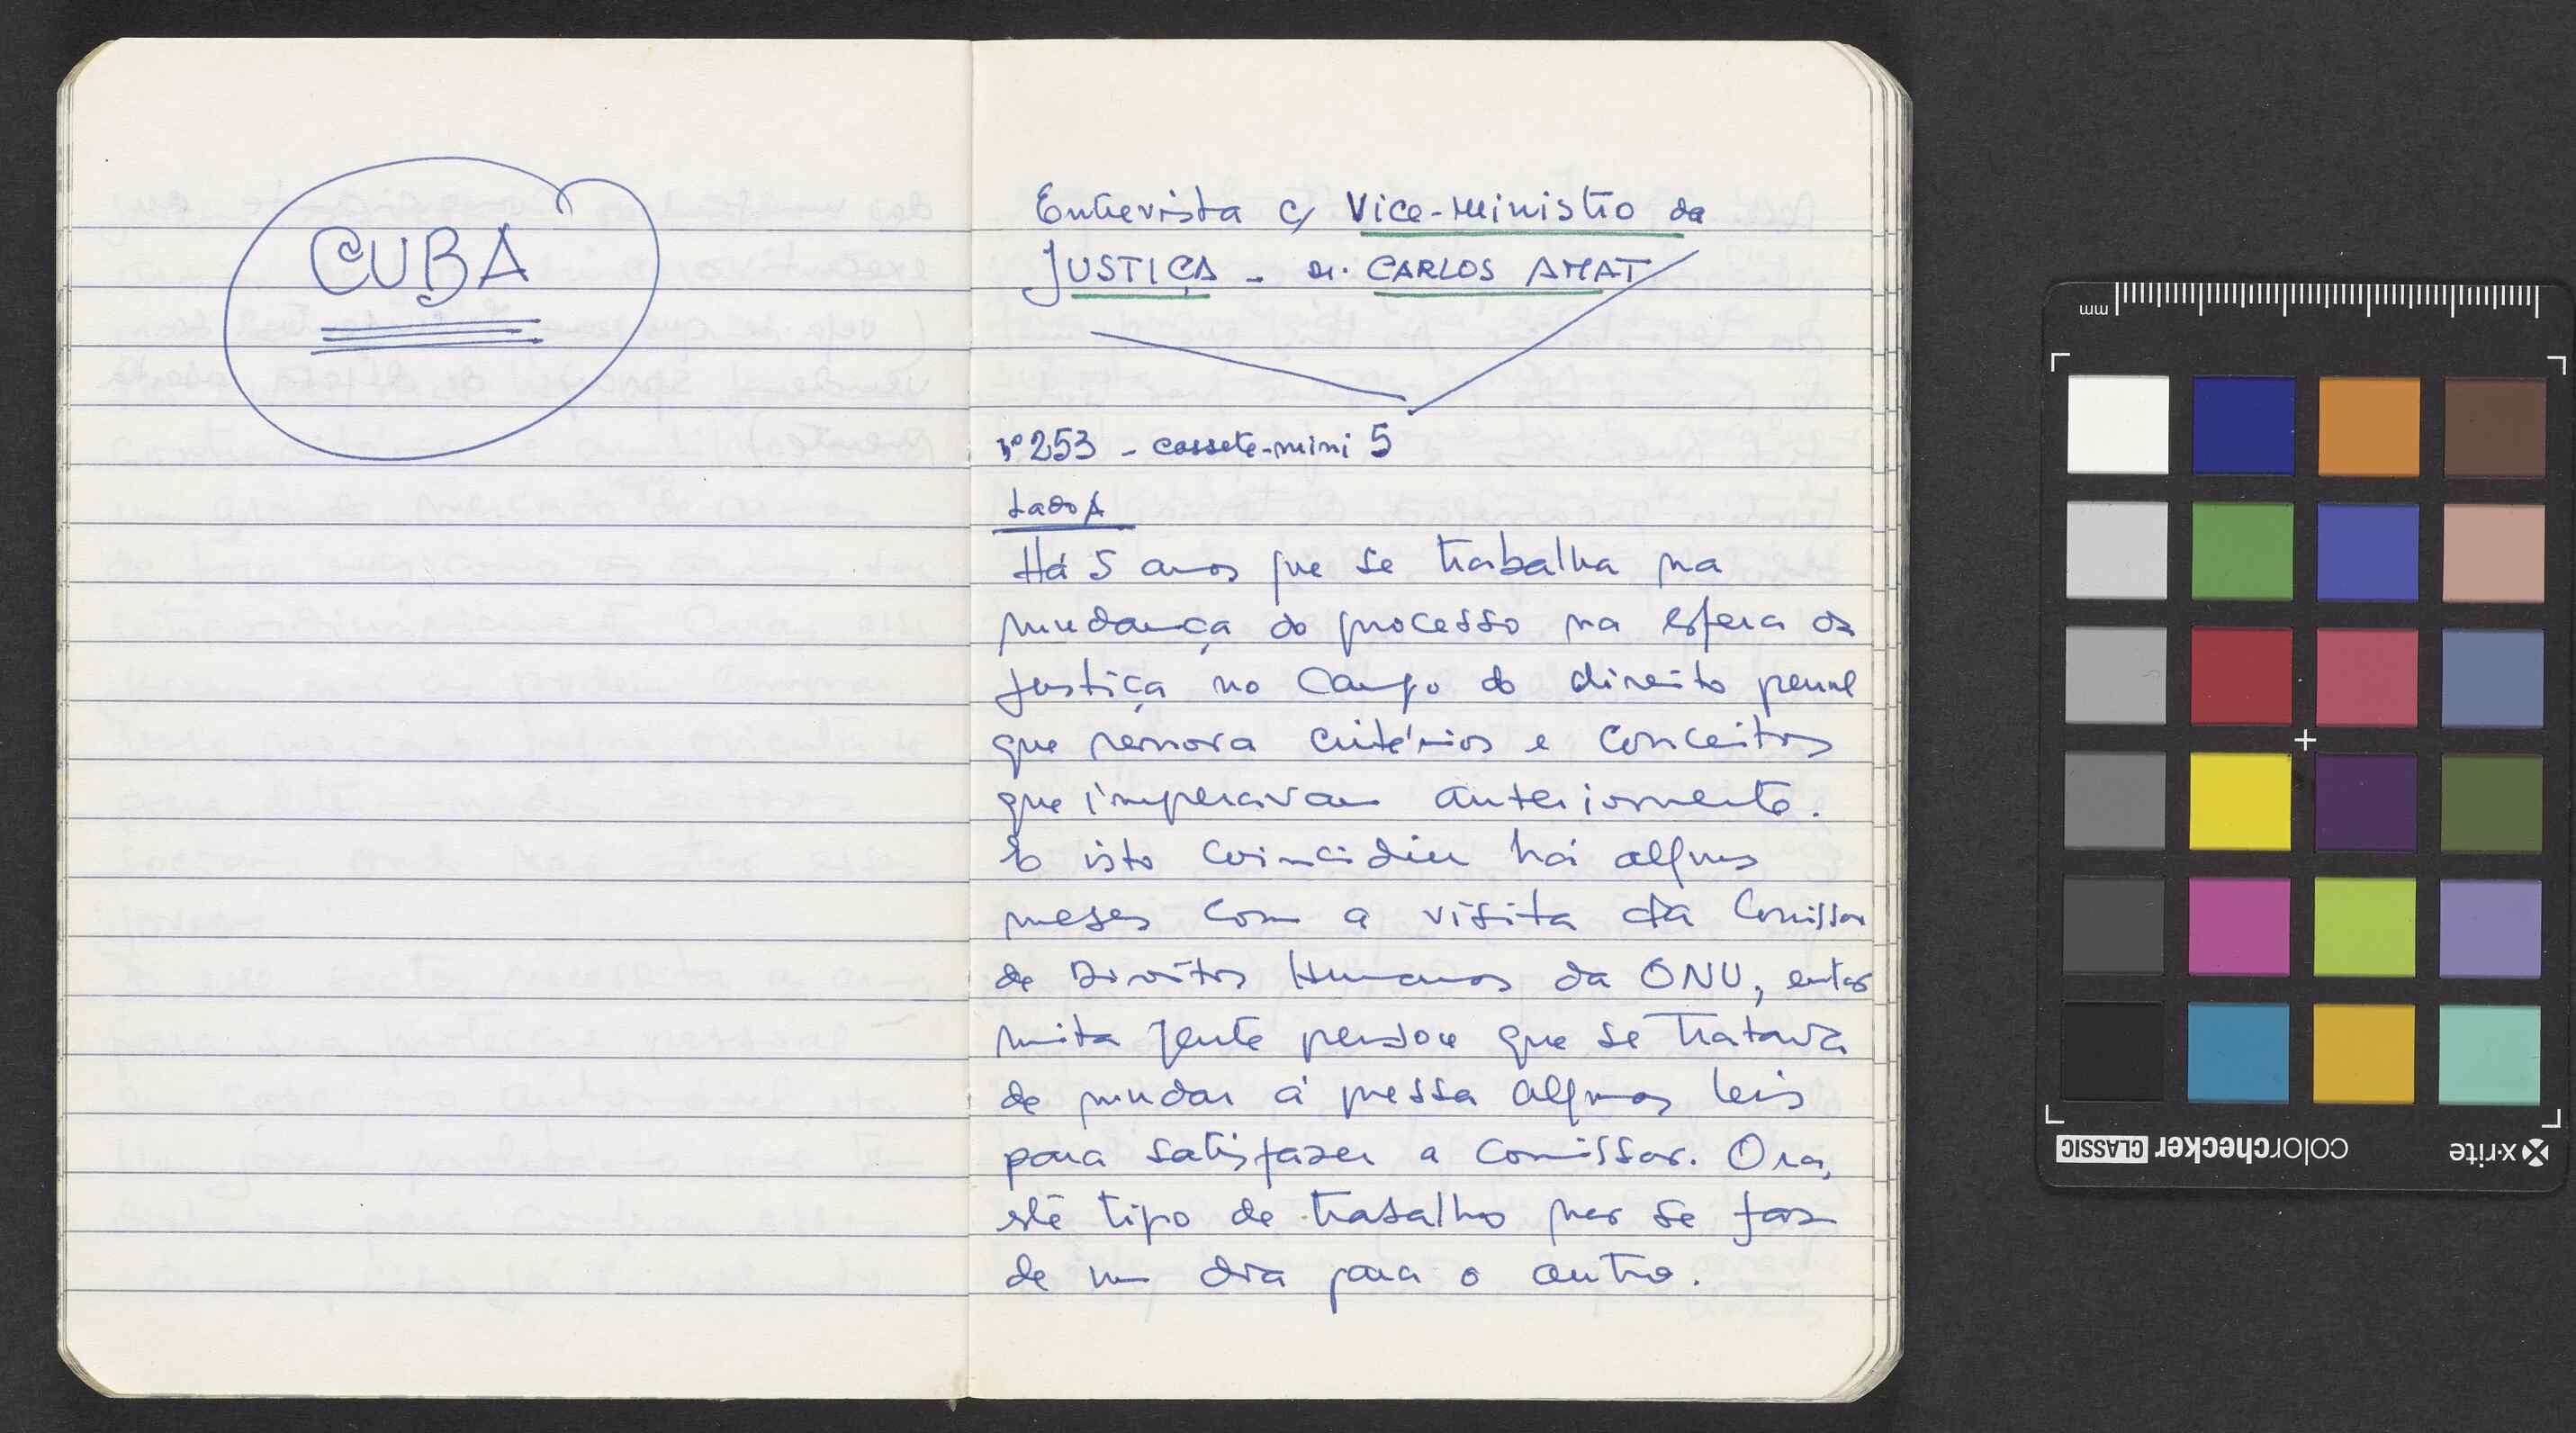 CUBA
Entrevista c/ Vice-Ministro da
JUSTIÇA - dr. CARLOS AMAT
nº 253 - cassete-mini 5
Lado A
Há 5 anos que se trabalha na
mudança do processo na esfera da
justiça no campo do direito penal
que renova critérios e conceitos
que imperavam anteriormente.
E isto coincidiu há alguns
meses com a visita da Comissão
de Direitos Humanos da ONU, então
muita gente pensou que se tratava
de mudar à pressa algumas leis
para satisfazer a Comissão. Ora,
este tipo de trabalho não se faz
de um dia para o outro.
mm
x-rite
colorchecker CLASSIC